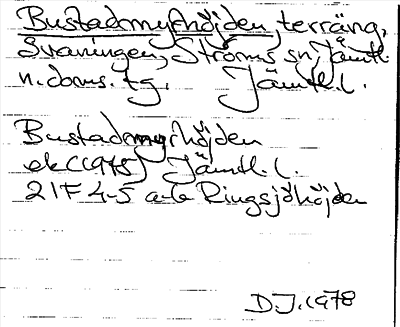 Bustadmyrhöjden, terräng,
Svaningen, Ströms sn, Jämtl.
n. doms. tg. Jämtl. l.
Bustadmyrhöjden
ek (1975) Jämtl. l.
21F 4-5 a-b Ringsjöhöjden
D.J. 1978